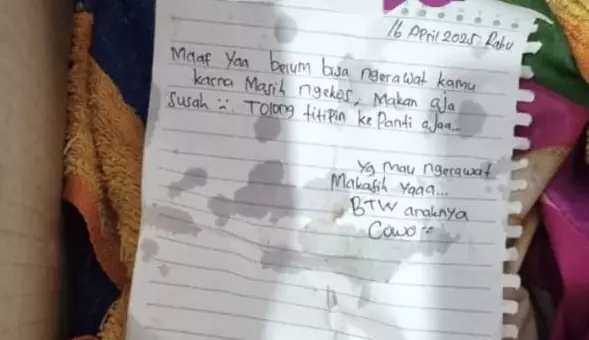 16 April 2025 Rabu
Maaf Yaa belum bisa ngerawat kamu
karna Masih ngekos, Makan aja
Susah :(. Tolong titipin ke Panti ajaa...
Yg mau ngerawat
Makasih Yaaa...
BTW anaknya
Cowo :(